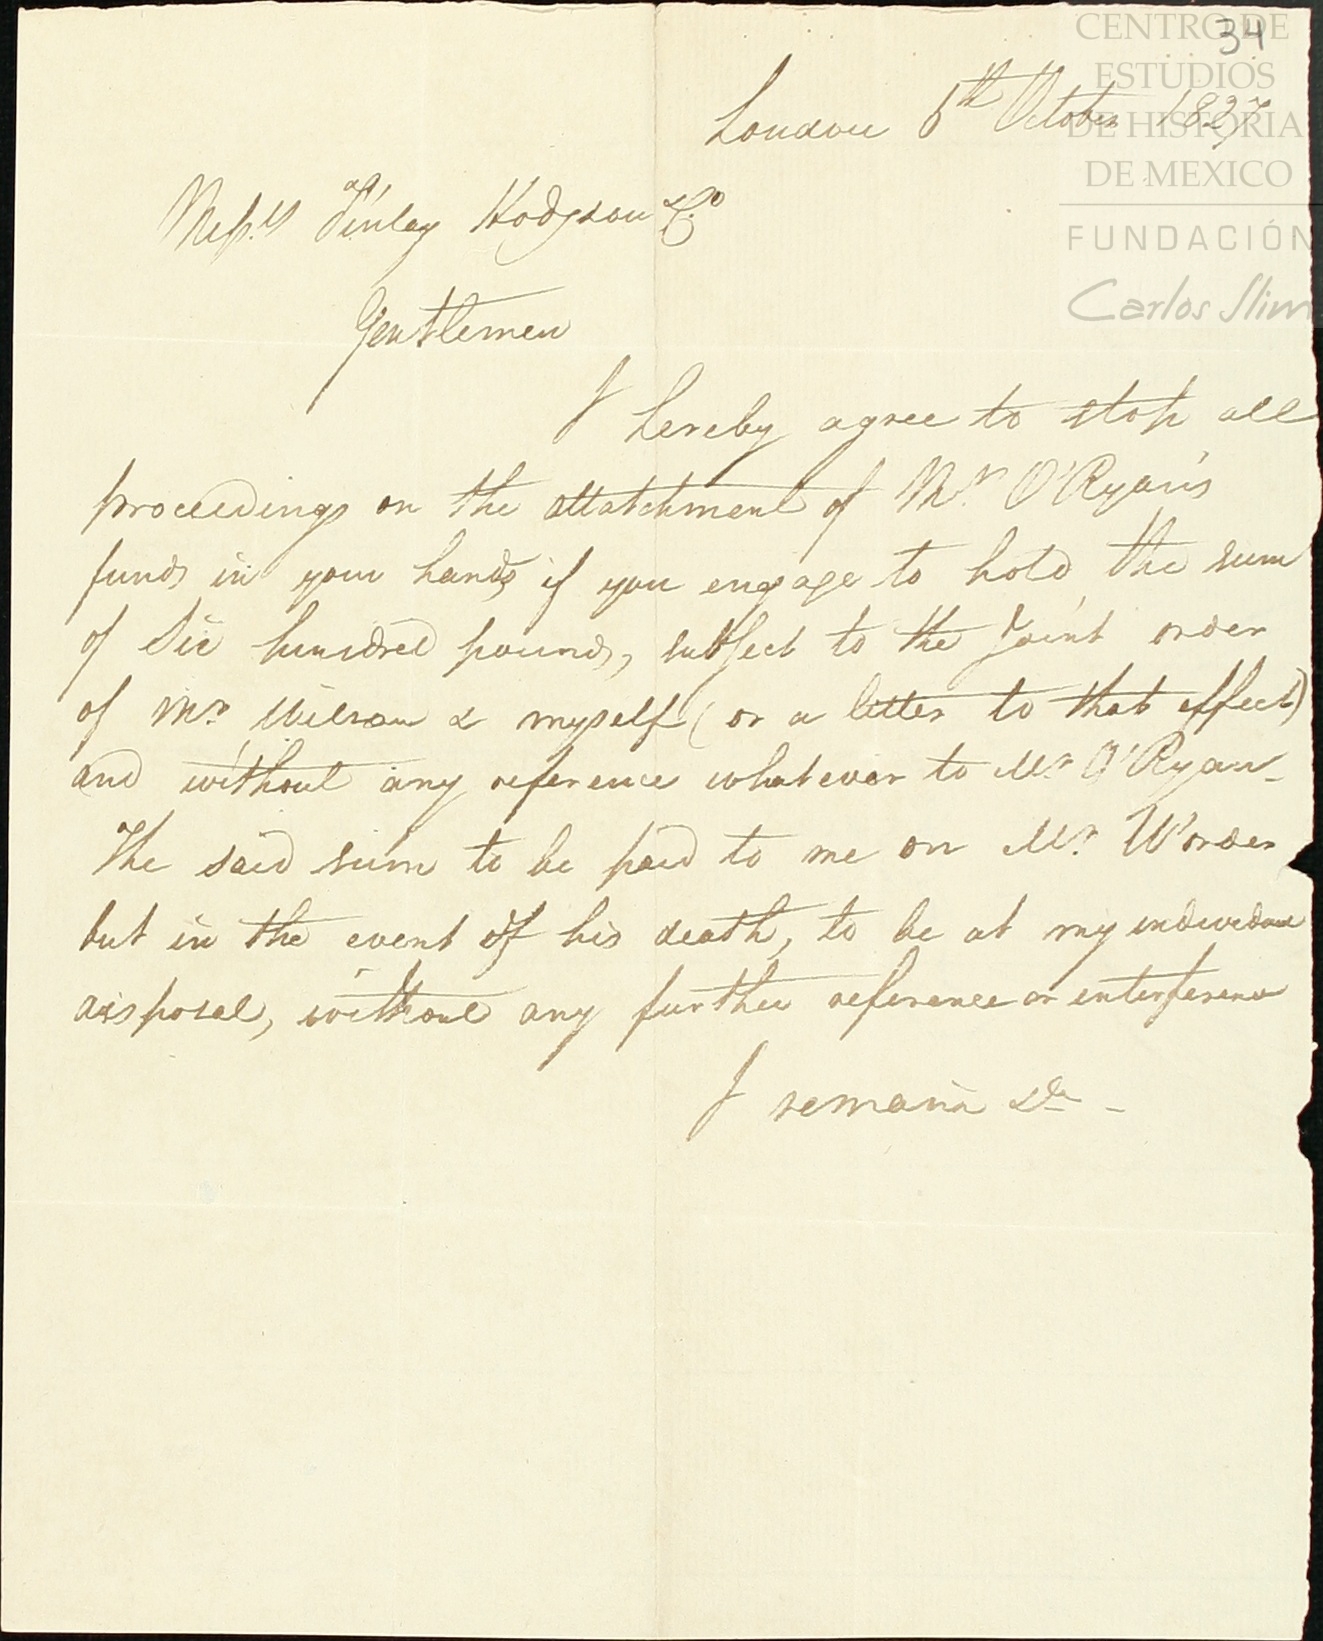 34
CENTRO DE
ESTUDIOS
DE HISTORIA
DE MEXICO
FUNDACIÓN
Carlos Slim
London 6th October 1827
Messrs Finlay Hodgson & Co
Gentlemen
I hereby agree to stop all
proceedings on the attatchment of Mr O'Ryan's
funds in your hands if you engage to hold the sum
of Six hundred pounds, subject to the Joint order
of Mr Wilson & myself (or a letter to that effect)
and without any reference whatever to Mr O'Ryan_
The said sum to be paid to me on Mr W order
but in the event of his death, to be at my individual
disposal, without any further reference or interference
I remain &c -